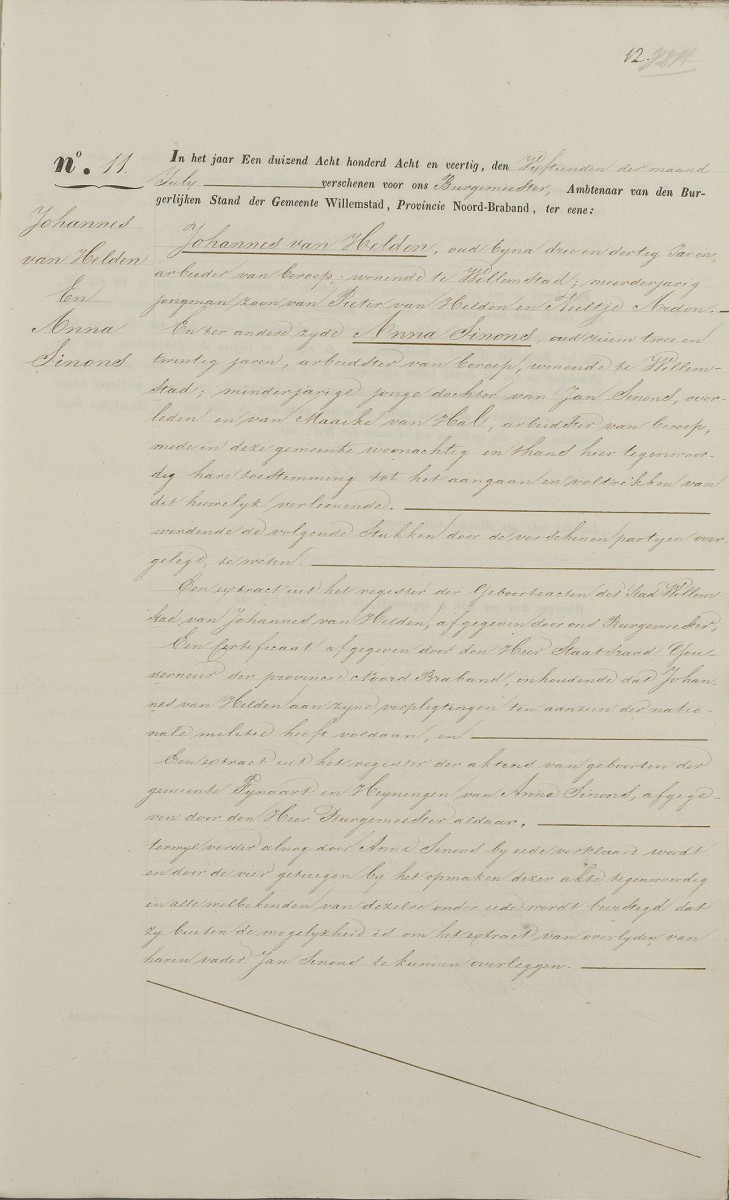 12.
nº. 11.
Johannes
van Helden
En
Anna
Sinons.
In het jaar Een duizend Acht honderd Acht en veertig, den Vyftienden der maand
July verschenen voor ons Burgemeester, Ambtenaar van den Bur-
gerlijken Stand der Gemeente Willemstad, Provincie Noord-Braband, ter eene:
Johannes van Helden, oud byna drie en dertig Jaren,
arbeider van beroep, wonende te Willemstad; meerderjarig
jongman, zoon van Pieter van Helden en Neeltje
En ter andere zyde Anna Sinons, oud ruim twee en
twintig jaren, arbeidster van beroep, wonende te Willem-
stad; minderjarige jonge dochter van Jan Sinons, over-
leden en van Maaike van Hal, arbeidster van beroep,
mede in deze gemeente woonachtig en thans hier tegenwoor-
dig hare toestemming tot het aangaan en voltrekken van
dit huwelyk verleenende.
wordende de volgende stukken door de verschenen partyen over-
gelegd, te weten:
Een extract uit het register der Geboorteacten der Stad Willem-
stad, van Johannes van Helden, afgegeven door ons Burgemeester,
Een Certificaat afgegeven door den Heer Staatsraad Gou-
verneur der provincie Noord Braband, inhoudende dat Johan-
nes van Helden aan zyne verpligtingen ten aanzien der natio-
nale militie heeft voldaan, en
Een extract uit het register der aktens van geboorten der
gemeente Fynaart en Heyningen van Anna Sinons, afgege-
ven door den Heer Burgemeester aldaar,
terwyl verder alnog door Anna Sinons by eede verklaard wordt
en door de vier getuigen by het opmaken dezer akte tegenwoordig
en alle welbekenden van dezelve onder eede wordt bevestigd dat
zy buiten de mogelykheid is om het extract van overlyden van
haren vader Jan Sinons te kunnen overleggen.